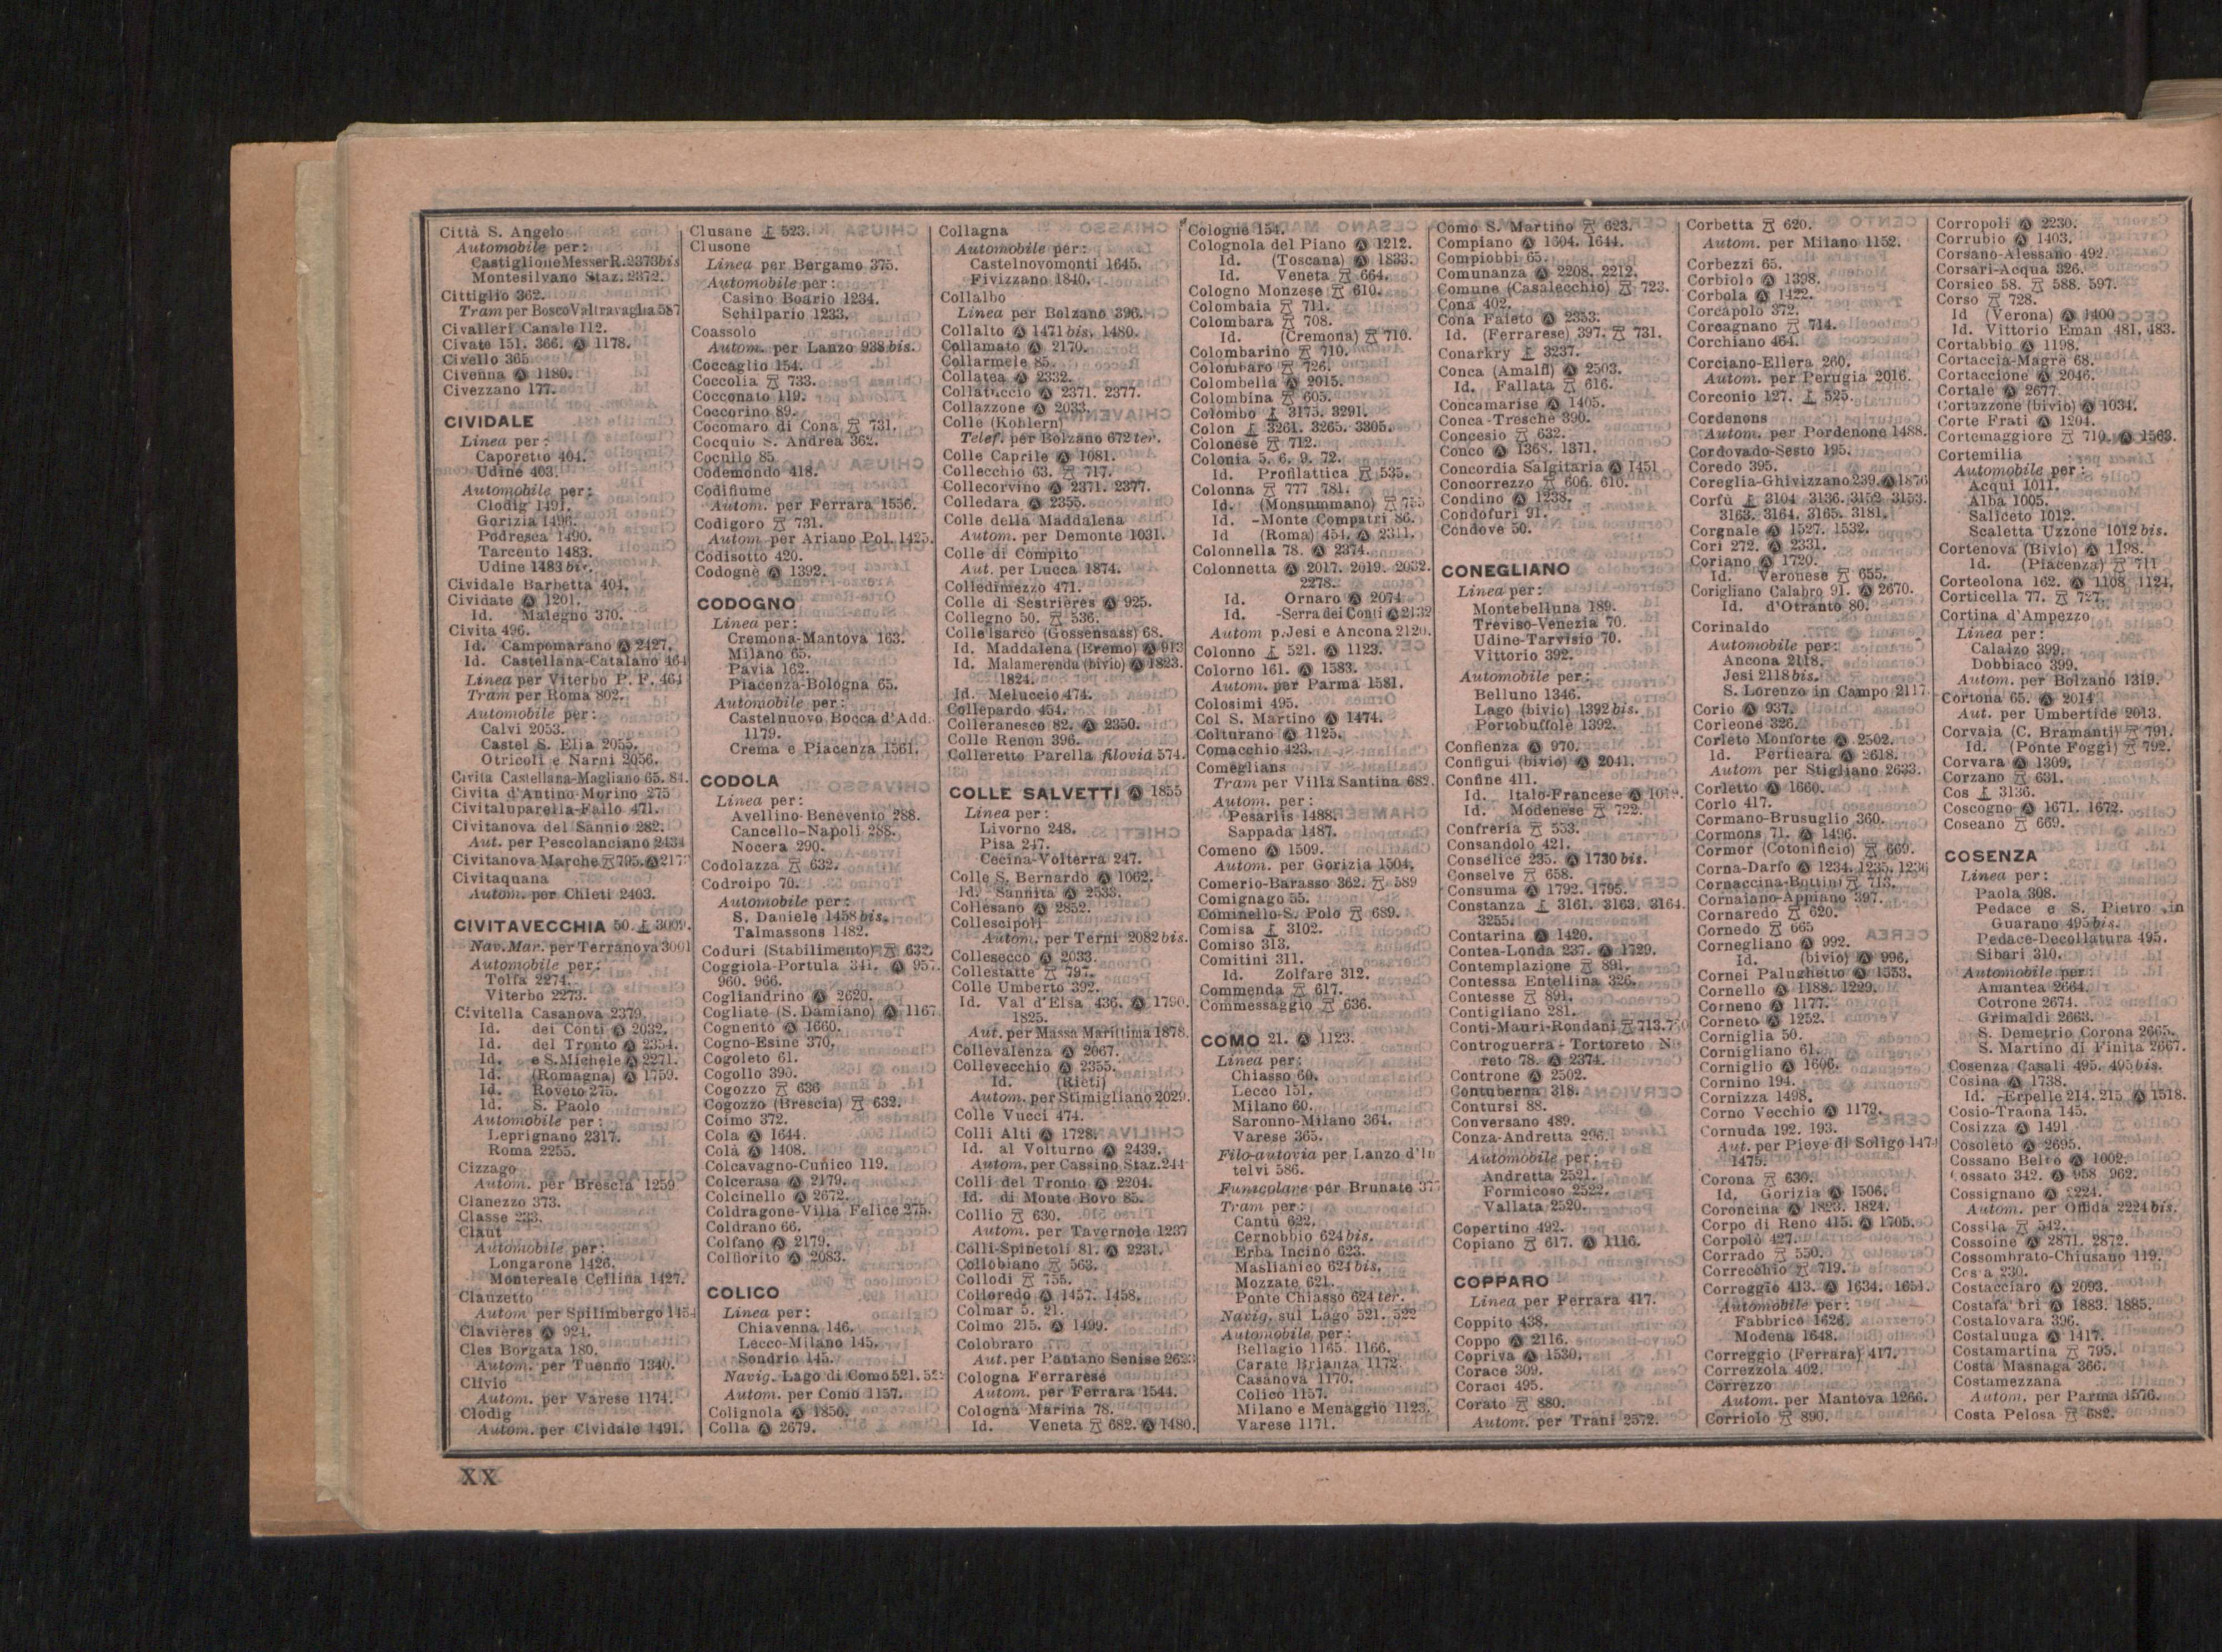 Città S. Angelo
Automobile per:
Castiglione Messer R. 2373 bis
Montesilvano Staz. 2372.
Cittiglio 362.
Tram per Bosco Valtravaglia 587
Civalleri Canale 112.
Civate 151. 366. Ⓐ 1178.
Civello 365
Civenna Ⓐ 1180.
Civezzano 177.
CIVIDALE
Linea per:
Caporetto 404.
Udine 403.
Automobile per:
Clodig 1491.
Gorizia 1496.
Podresca 1490.
Tarcento 1483.
Udine 1483 bis.
Cividale Barbetta 404.
Cividate Ⓐ 1201.
Id. Malegno 370.
Civita 496.
Id. Campomarano Ⓐ 2427.
Id. Castellana-Catalano 464
Linea per Viterbo P. F. 464
Tram per Roma 802.
Automobile per:
Calvi 2053.
Castel S. Elia 2055.
Otricoli e Narni 2056.
Civita Castellana-Magliano 65. 84.
Civita d'Antino-Morino 275
Civitaluparella-Fallo 471.
Civitanova del Sannio 282.
Aut. per Pescolanciano 2434
Civitanova Marche 795. Ⓐ
Civitaquana
Autom. per Chieti 2403.
CIVITAVECCHIA 50. 3009.
Nav. Mar. per Terranova 3001
Automobile per:
Tolfa 2274.
Viterbo 2273.
Civitella Casanova 2379.
Id. dei Conti Ⓐ 2032.
Id. del Tronto Ⓐ 2354.
Id. e S. Michele Ⓐ 2271.
Id. (Romagna) Ⓐ 1759.
Id. Roveto 275.
Id. S. Paolo
Automobile per:
Leprignano 2317.
Roma 2255.
Cizzago
Autom. per Brescia 1259
Clanezzo 373.
Classe 233.
Claut
Automobile per:
Longarone 1426.
Montereale Cellina 1427.
Clauzetto
Autom per Spilimbergo 1454
Clavières Ⓐ 924.
Cles Borgata 180.
Autom. per Tuenno 1340.
Clivio
Autom. per Varese 1174.
Clodig
Autom. per Cividale 1491.
Clusane 523.
Clusone
Linea per Bergamo 375.
Automobile per:
Casino Boario 1234.
Schilpario 1233.
Coassolo
Autom. per Lanzo 938 bis.
Coccaglio 154.
Coccolia 733.
Cocconato 119.
Coccorino 89.
Cocomaro di Cona 731.
Cocquio S. Andrea 362.
Cocullo 85
Codemondo 418.
Codifiume
Autom. per Ferrara 1556.
Codigoro 731.
Autom per Ariano Pol. 1425.
Codisotto 420.
Codognè Ⓐ 1392.
CODOGNO
Linea per:
Cremona-Mantova 163.
Milano 65.
Pavia 162.
Piacenza-Bologna 65.
Automobile per:
Castelnuovo Bocca d'Add.
1179.
Crema e Piacenza 1561.
CODOLA
Linea per:
Avellino-Benevento 288.
Cancello-Napoli 288.
Nocera 290.
Codolazza 632.
Codroipo 70.
Automobile per:
S. Daniele 1458 bis.
Talmassons 1482.
Coduri (Stabilimento) 632.
Coggiola-Portula 341. Ⓐ 957.
960. 966.
Cogliandrino Ⓐ 2620.
Cogliate (S. Damiano) Ⓐ 1167
Cognento Ⓐ 1660.
Cogno-Esine 370.
Cogoleto 61.
Cogollo 390.
Cogozzo 636
Cogozzo (Brescia) 632.
Coimo 372.
Cola Ⓐ 1644.
Colà Ⓐ 1408.
Colcavagno-Cunico 119.
Colcerasa Ⓐ 2179.
Colcinello Ⓐ 2672.
Coldragone-Villa Felice 275.
Coldrano 66.
Colfano Ⓐ 2179.
Colfiorito Ⓐ 2083.
COLICO
Linea per:
Chiavenna 146.
Lecco-Milano 145.
Sondrio 145.
Navig. Lago di Como 521.
Autom. per Como 1157.
Colignola Ⓐ 1850.
Colla Ⓐ 2679.
Collagna
Automobile per:
Castelnovomonti 1645.
Fivizzano 1840.
Collalbo
Linea per Bolzano 396.
Collalto Ⓐ 1471 bis. 1480.
Collamato Ⓐ 2170.
Collarmele 85.
Collatea Ⓐ 2332.
Collatuccio Ⓐ 2371. 2377.
Collazzone Ⓐ 2033.
Colle (Kohlern)
Telef. per Bolzano 672 ter.
Colle Caprile Ⓐ 1081.
Collecchio 63. 717.
Collecorvino Ⓐ 2371. 2377.
Colledara Ⓐ 2355.
Colle della Maddalena
Autom. per Demonte 1031.
Colle di Compito
Aut. per Lucca 1874.
Colledimezzo 471.
Colle di Sestrières Ⓐ 925.
Collegno 50. 536.
Colle Isarco (Gossensass) 68.
Id. Maddalena (Eremo) Ⓐ 913
Id. Malamerenda (bivio) Ⓐ 1823.
1824.
Id. Meluccio 474.
Collepardo 454.
Colleranesco 82. Ⓐ 2350.
Colle Renon 396.
Colleretto Parella filovia 574.
COLLE SALVETTI Ⓐ 1855
Linea per:
Livorno 248.
Pisa 247.
Cecina-Volterra 247.
Colle S. Bernardo Ⓐ 1062.
Id. Sannita Ⓐ 2533.
Collesano Ⓐ 2852.
Collescipoli
Autom. per Terni 2082 bis.
Collesecco Ⓐ 2033.
Collestatte 797.
Colle Umberto 392.
Id. Val d'Elsa 436. Ⓐ 1790.
1825.
Aut. per Massa Marittima 1878.
Collevalenza Ⓐ 2067.
Collevecchio Ⓐ 2355.
Id. (Rieti)
Autom. per Stimigliano 2029.
Colle Vucci 474.
Colli Alti Ⓐ 1728.
Id. al Volturno Ⓐ 2439.
Autom. per Cassino Staz. 244
Colli del Tronto Ⓐ 2204.
Id. di Monte Bovo 85.
Collio 630.
Autom. per Tavernole 1237
Colli-Spinetoli 81. Ⓐ 2231.
Collobiano 563.
Collodi 755.
Colloredo Ⓐ 1457. 1458.
Colmar 5. 21.
Colmo 215. Ⓐ 1499.
Colobraro
Aut. per Pantano Senise
Cologna Ferrarese
Autom. per Ferrara 1544.
Cologna Marina 78.
Id. Veneta 682. Ⓐ 1480.
Cologne 154.
Colognola del Piano Ⓐ 1212.
Id. (Toscana) Ⓐ 1833.
Id. Veneta 664.
Cologno Monzese 610.
Colombaia 711.
Colombara 708.
Id. (Cremona) 710.
Colombarino 710.
Colombaro 726.
Colombella Ⓐ 2015.
Colombina 605.
Colombo 3175. 3291.
Colon 3261. 3265. 3305.
Colonese 712.
Colonia 5. 6. 9. 72.
Id. Profilattica 535.
Colonna 777 781.
Id. (Monsummano)
Id. -Monte Compatri 86.
Id (Roma) 454. Ⓐ 2311.
Colonnella 78. Ⓐ 2374.
Colonnetta Ⓐ 2017. 2019. 2032.
2278.
Id. Ornaro Ⓐ 2074
Id. -Serra dei Conti Ⓐ 2132
Autom p. Jesi e Ancona 2120.
Colonno 521. Ⓐ 1123.
Colorno 161. Ⓐ 1583.
Autom. per Parma 1581.
Colosimi 495.
Col S. Martino Ⓐ 1474.
Colturano Ⓐ 1125.
Comacchio 423.
Comeglians
Tram per Villa Santina 682.
Autom. per:
Pesariis 1488.
Sappada 1487.
Comeno Ⓐ 1509.
Autom. per Gorizia 1504.
Comerio-Barasso 362. 589
Comignago 55.
Cominello-S. Polo 689.
Comisa 3102.
Comiso 313.
Comitini 311.
Id. Zolfare 312.
Commenda 617.
Commessaggio 636.
COMO 21. Ⓐ 1123.
Linea per:
Chiasso 60.
Lecco 151.
Milano 60.
Saronno-Milano 364.
Varese 365.
Filo-autovia per Lanzo d'In
telvi 586.
Funicolare per Brunate
Tram per:
Cantù 622.
Cernobbio 624 bis.
Erba Incino 623.
Maslianico 624 bis.
Mozzate 621.
Ponte Chiasso 624 ter.
Navig. sul Lago 521. 522
Automobile per:
Bellagio 1165. 1166.
Carate Brianza 1172
Casanova 1170.
Colico 1157.
Milano e Menaggio 1123.
Varese 1171.
Como S. Martino 623.
Compiano Ⓐ 1604. 1644.
Compiobbi 65.
Comunanza Ⓐ 2208. 2212.
Comune (Casalecchio) 723.
Cona 402.
Cona Faieto Ⓐ 2353.
Id. (Ferrarese) 397. 731.
Conarkry 3237.
Conca (Amalfi) Ⓐ 2503.
Id. Fallata 616.
Concamarise Ⓐ 1405.
Conca-Tresche 390.
Concesio 632.
Conco Ⓐ 1368. 1371.
Concordia Salgitaria Ⓐ 1451
Concorrezzo 606. 610.
Condino Ⓐ 1238.
Condofuri 91.
Condove 50.
CONEGLIANO
Linea per:
Montebelluna 189.
Treviso-Venezia 70.
Udine-Tarvisio 70.
Vittorio 392.
Automobile per:
Belluno 1346.
Lago (bivio) 1392 bis.
Portobuffolè 1392.
Confienza Ⓐ 970.
Configui (bivio) Ⓐ 2041.
Confine 411.
Id. Italo-Francese Ⓐ
Id. Modenese 722.
Confreria 553.
Consandolo 421.
Conselice 235. Ⓐ 1730 bis.
Conselve 658.
Consuma Ⓐ 1792. 1795.
Constanza 3161. 3163. 3164.
3255.
Contarina Ⓐ 1420.
Contea-Londa 237. Ⓐ 1729.
Contemplazione 891.
Contessa Entellina 326.
Contesse 891.
Contigliano 281.
Conti-Mauri-Rondani 713.
Controguerra - Tortoreto Ne-
reto 78. Ⓐ 2374.
Controne Ⓐ 2502.
Contuberna 318.
Contursi 88.
Conversano 489.
Conza-Andretta 296.
Automobile per:
Andretta 2521.
Formicoso 2522.
Vallata 2520.
Copertino 492.
Copiano 617. Ⓐ 1116.
COPPARO
Linea per Ferrara 417.
Coppito 438.
Coppo Ⓐ 2116.
Copriva Ⓐ 1530.
Corace 309.
Coraci 495.
Corato 880.
Autom. per Trani 2572.
Corbetta 620.
Autom. per Milano 1152.
Corbezzi 65.
Corbiolo Ⓐ 1398.
Corbola Ⓐ 1422.
Corcapolo 372.
Corcagnano 714.
Corchiano 464.
Corciano-Ellera 260.
Autom. per Perugia 2016.
Corconio 127. 525.
Cordenons
Autom. per Pordenone 1488.
Cordovado-Sesto 195.
Coredo 395.
Coreglia-Ghivizzano 239. Ⓐ 1876
Corfù 3104 3136. 3152 3153.
3163. 3164. 3165. 3181.
Corgnale Ⓐ 1527. 1532.
Cori 272. Ⓐ 2331.
Coriano Ⓐ 1720.
Id. Veronese 655.
Corigliano Calabro 91. Ⓐ 2670.
Id. d'Otranto 80.
Corinaldo
Automobile per:
Ancona 2118.
Jesi 2118 bis.
S. Lorenzo in Campo 2117.
Corio Ⓐ 937.
Corleone 326.
Corleto Monforte Ⓐ 2502.
Id. Perticara Ⓐ 2618.
Autom per Stigliano 2633.
Corletto Ⓐ 1660.
Corlo 417.
Cormano-Brusuglio 360.
Cormons 71. Ⓐ 1496.
Cormor (Cotonificio) 669.
Corna-Darfo Ⓐ 1234. 1235. 1236
Cornaccina-Bottini 713.
Cornaiano-Appiano 397.
Cornaredo 620.
Cornedo 665
Cornegliano Ⓐ 992.
Id. (bivio) Ⓐ 996.
Cornei Palughetto Ⓐ 1353.
Cornello Ⓐ 1188. 1229.
Corneno Ⓐ 1177.
Corneto Ⓐ 1252.
Corniglia 50.
Cornigliano 61.
Corniglio Ⓐ 1606.
Cornino 194.
Cornizza 1498.
Corno Vecchio Ⓐ 1179.
Cornuda 192. 193.
Aut. per Pieve di Soligo 1474
1475.
Corona 630.
Id. Gorizia Ⓐ 1506.
Coroncina Ⓐ 1823. 1824.
Corpo di Reno 415. Ⓐ 1705.
Corpolò 427.
Corrado 550.
Correcchio 719.
Correggio 413. Ⓐ 1634. 1651.
Automobile per:
Fabbrico 1626.
Modena 1648.
Correggio (Ferrara) 417.
Correzzola 402.
Correzzo
Autom. per Mantova 1266.
Corriolo 890.
Corropoli Ⓐ 2230.
Corrubio Ⓐ 1403.
Corsano-Alessano 492.
Corsari-Acqua 326.
Corsico 58. 588. 597.
Corso 728.
Id (Verona) Ⓐ 1400
Id. Vittorio Eman 481. 483.
Cortabbio Ⓐ 1198.
Cortaccia-Magrè 68.
Cortaccione Ⓐ 2046.
Cortale Ⓐ 2677.
Cortazzone (bivio) Ⓐ 1034.
Corte Frati Ⓐ 1204.
Cortemaggiore 710. Ⓐ 1563.
Cortemilia
Automobile per:
Acqui 1011.
Alba 1005.
Saliceto 1012.
Scaletta Uzzone 1012 bis.
Cortenova (Bivio) Ⓐ 1198.
Id. (Piacenza) 711
Corteolona 162. Ⓐ 1108 1124.
Corticella 77. 727.
Cortina d'Ampezzo
Linea per:
Calalzo 399.
Dobbiaco 399.
Autom. per Bolzano 1319.
Cortona 65. Ⓐ 2014
Aut. per Umbertide 2013.
Corvaia (C. Bramanti) 791.
Id. (Ponte Foggi) 792.
Corvara Ⓐ 1309.
Corzano 631.
Cos 3136.
Coscogno Ⓐ 1671. 1672.
Coseano 669.
COSENZA
Linea per:
Paola 308.
Pedace e S. Pietro in
Guarano 495 bis.
Pedace-Decollatura 495.
Sibari 310.
Automobile per:
Amantea 2664.
Cotrone 2674.
Grimaldi 2663.
S. Demetrio Corona 2665.
S. Martino di Finita 2667.
Cosenza Casali 495. 495 bis.
Cosina Ⓐ 1738.
Id. -Erpelle 214. 215 Ⓐ 1518.
Cosio-Traona 145.
Cosizza Ⓐ 1491
Cosoleto Ⓐ 2695.
Cossano Belbo Ⓐ 1002.
Cossato 342. Ⓐ 958 962.
Cossignano Ⓐ 2224.
Autom. per Offida 2224 bis.
Cossila 542.
Cossoine Ⓐ 2871. 2872.
Cossombrato-Chiusano 119.
Cossa 230.
Costacciaro Ⓐ 2093.
Costafabbri Ⓐ 1883. 1885.
Costalovara 396.
Costalunga Ⓐ 1417.
Costamartina 795.
Costa Masnaga 366.
Costamezzana
Autom. per Parma 1576.
Costa Pelosa 682.
XX